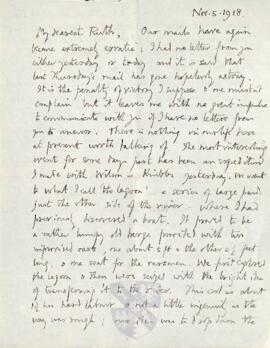 Nov. 5. 1918.
My dearest Ruth, Our mails have again
become extremely erratic; I had no letter from you
either yesterday or today and it is said that
last Thursday's mail has gone hopelessly astray.
It is the penalty of victory I suppose & one mustn't
complain but it leaves me with no great impulse
to communicate with you if I have no letter from
you to answer. There is nothing in our life here
at present worth talking of. The most interesting
event for some days past has been an expedition
I made with Wilson & yesterday. We went
to what I call 'the lagoon' a series of large pond
just the other side of the river – where I had
previously discovered a boat. It proved to be
a rather lumpy old barge provided with two
improvised oars, one about 5 ft & the other 4 feet
long, & one seat for the oarsman. We first explored
the lagoon & then were seized with the bright idea
of transferring it to the river. This cost us about
1½ hrs hard labour & not a little ingenuity as the
way was rough; our idea was to drop down the